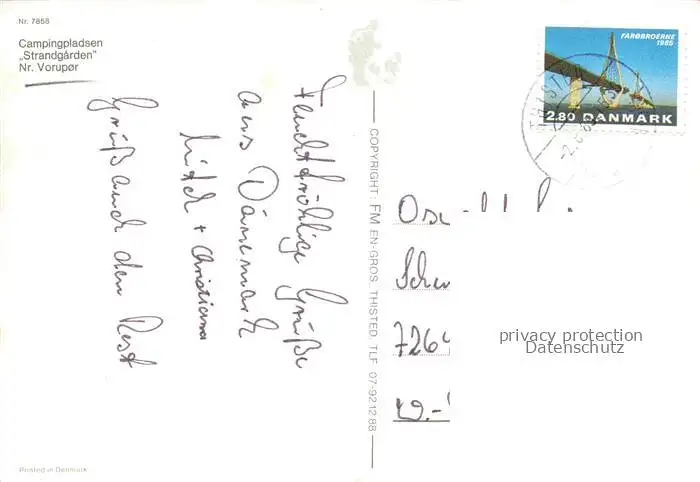 Nr. 7858
Campingpladsen
„Strandgården”
Nr. Vorupør
Feuchtfröhliche Grüße
aus Dänemark
+ Christiane
Grüß auch den Rest
COPYRIGHT: FM EN-GROS, THISTED, TLF 07-921288
FARØBROERNE
1985
2.80 DANMARK
THISTED
Osw
Schu
726
privacy protection
Datenschutz
Printed in Denmark